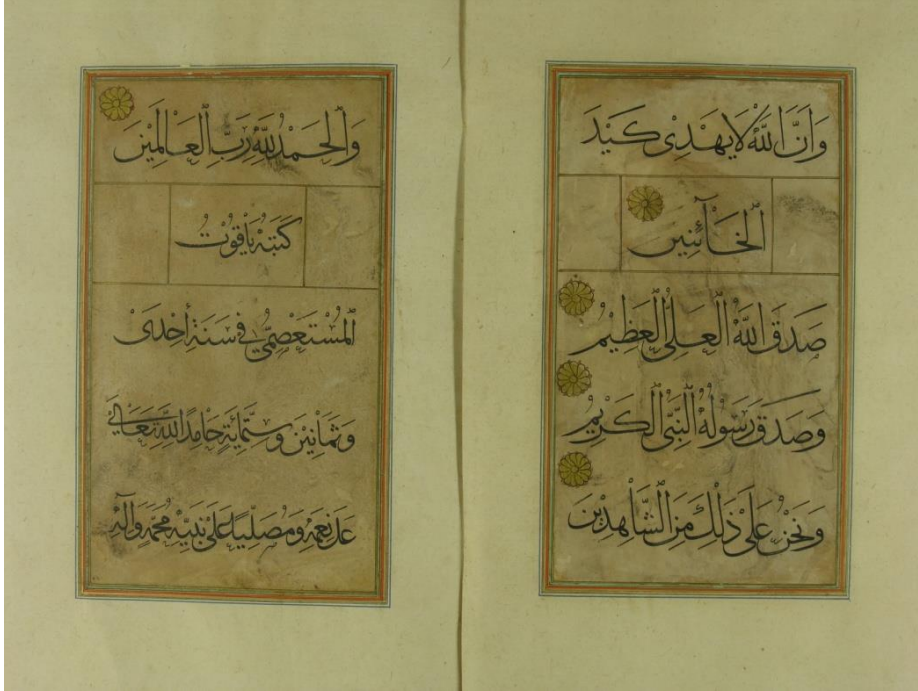 وَاَنَّ اللّٰهَ لَا يَهْدِى كَيْدَ
الْخَآئِنِينَ
صَدَقَ اللّٰهُ الْعَلِىُّ الْعَظِيْمُ
وَصَدَقَ رَسُولُهُ النَّبِىُّ الْكَرِيْمُ
وَنَحْنُ عَلَى ذٰلِكَ مِنَ الشَّاهِدِيْنَ
وَالْحَمْدُ لِلّٰهِ رَبِّ الْعَالَمِيْنَ
كَتَبَهُ يَاقُوْتُ
الْمُسْتَعْصِمِىُّ فِى سَنَةِ أِحْدَى
وَثَمَانِيْنَ وَسِتَّمِائَةٍ حَامِدًا لِلّٰهِ تَعَالَى
عَلَى نِعَمِهِ وَمُصَلِّيًا عَلَى نَبِيِّهِ مُحَمَّدٍ وَآلِهِ